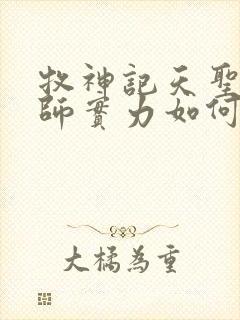 牧神記天聖
師實力如何
大橘為重